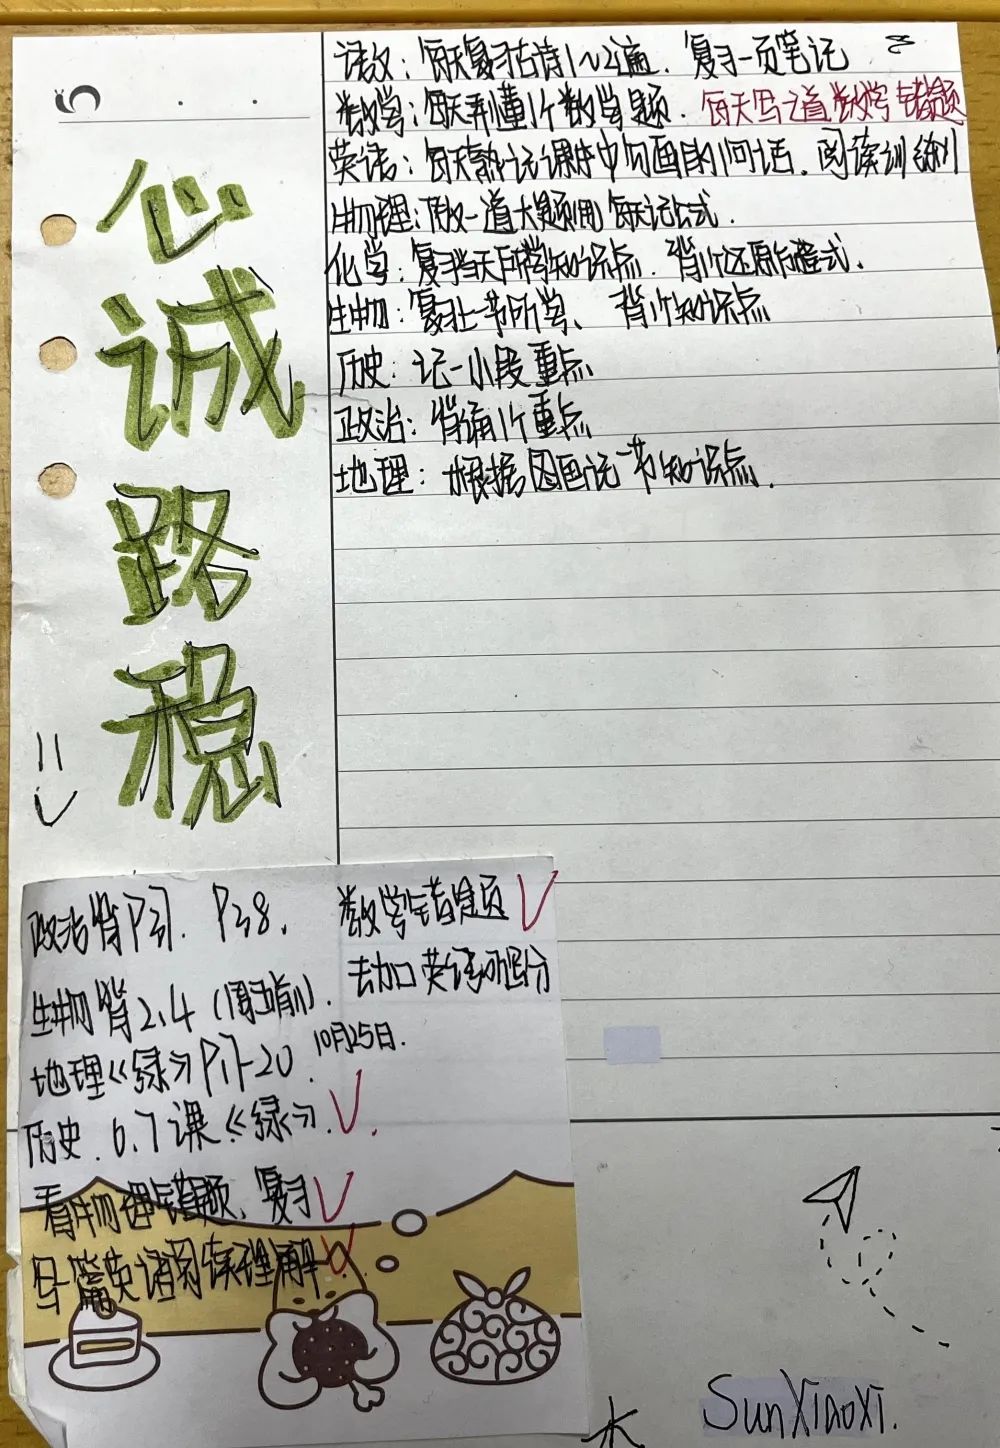 语文：每天复习古诗1~2遍．复习一页笔记
数学：每天弄懂1个数学题．每天写2道数学错题
英语：每天熟记课本中勾画的1个词语．阅读训练1
物理：做一道大题．每天记公式．
化学：复习当天所学知识点．背1个还原方程式．
生物：复习上一节所学、背1个知识点
历史：记一小段重点
政治：背诵1个重点
地理：根据图画记一节知识点．
心诚路稳
政治背P37．P38．
数学错题页
去加英语听力
生物背2.4（周五前）．
地理《绿》P17-20．
10月25日．
历史．6.7课《绿》．
看物理错题．复习
写一篇英语阅读理解
SunXiaoXi.